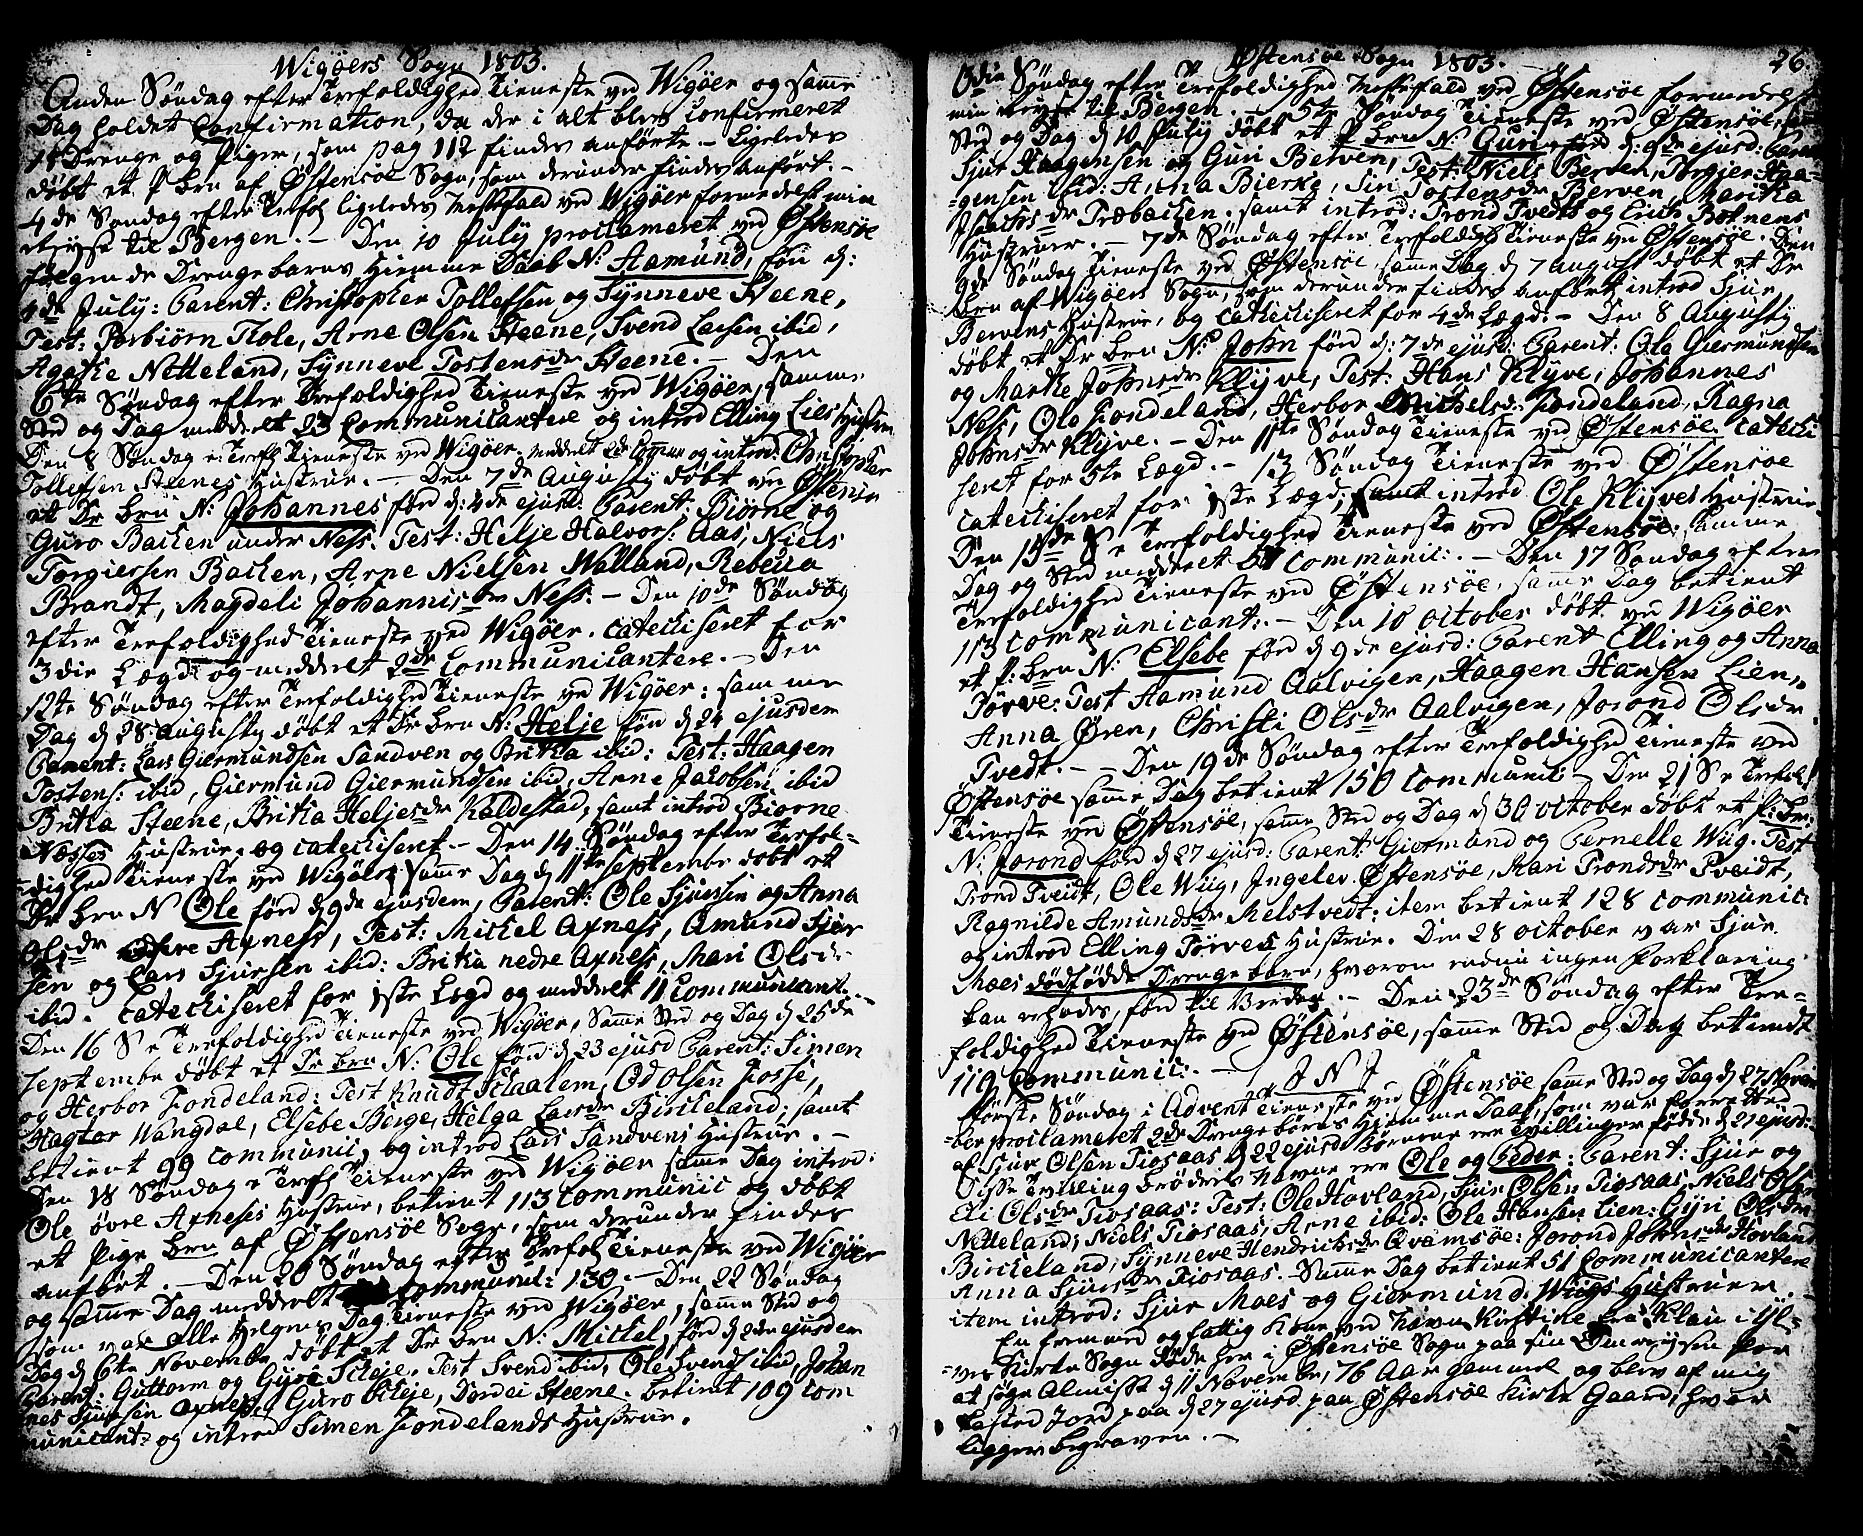 Wigøers Sogn 1803.
Anden Søndag efter Trefoldighed Tieneste ved Wigøer og samme
Dag holdet Confirmation, da der i alt blev confirmeret
Drenge og Piger, som pag 112 findes anførte. - Ligeledes
døbt et P. brn af Østensøe Sogn, som derunder findes anført. -
4de Søndag efter Trefol ligeledes Messefald ved Wigøer formedelst min
Reyse til Bergen. - Den 10 July proclameret ved Østensøe
følgende Drengebarns Hiemme Daab N: Aamund, fön d:
4de July: Parent: Christopher Tollefsen og Synneve Steene,
Test: Torbiørn Flole, Arne Olsen Steene, Svend Larsen ibid,
Agathe Netteland, Synneve Tostensdr Steene. - Den
6te Søndag efter Trefoldighed Tieneste ved Wigøer, samme
Sted og Dag meddeelt 23 Communicantere og introd Elling Lies Hustrue
Den 8 Søndag e: Trefl Tieneste ved Wigøer. meddeelt Commun og introd: Christopher
Tollefsen Steenes Hustrue. - Den 7de Augusty døbt ved Østensøe
et Dr brn N: Johannes förd d: 4de ejusd: Parent: Biørne og
Guro Backen under Ness. Test: Helje Halvors: Aas, Niels
Torgiersen Backen, Arne Nielsen Walland, Rebecca
Brandt, Magdeli Johannisdr Ness. - Den 10de Søndag
efter Trefoldighed Tieneste ved Wigøer. catechiseret for
3die Lægd og meddeelt 2de Communicantere. - Den
12te Søndag efter Trefoldighed Tieneste ved Wigøer: samme
Dag d 28 Augusty døbt et Dr brn N: Helje förd d 24 ejusdem
Parent: Lars Giermundsen Sandven og Britha ibid: Test: Haagen
Tostens: ibid, Giermund Giermundsen ibid, Arne Jacobsen ibid
Britha Steene, Britha Heljesdr Kaldestad, samt introd Biørne
Næsses Hustrue, og catechiseret. - Den 14 Søndag efter Trefol-
dighed Tieneste ved Wigøer, samme Dag d 11te September døbt et
Dr brn N Ole förd d 9de ejusdem, Parent: Ole Sjursen og Anna
Olsdr Axness, Test: Mickel Axness, Amund Sjur
sen og Lars Sjursen ibid: Britha nedre Axness, Mari Olsdr
ibid. catechiseret for 1ste Lægd og meddeelt 11 Communicant. -
Den 16 S e Trefoldighed Tieneste ved Wigøer, Samme Sted og Dag d 25de
September døbt et Dr brn N: Ole förd d 23 ejusd Parent: Simen
og Herbor Fondeland: Test Knudt Schaalem, Od Olsen Fosse,
Hagtor Wangdal, Elsebe Berge, Helga Larsdr Birckeland: samt
betient 99 communic, og introd Lars Sandvens Hustrue. -
Den 18 Søndag e Trefl Tieneste ved Wigøer samme Dag introd:
Ole øvre Axneses Hustrue, betient 113 communic og døbt
et Pige brn af Østensøe Sogn, som derunder findes
anført. - Den 20 Søndag efter Trefol Tieneste ved Wigøer
og samme Dag meddeelt Communic: 130. - Den 22 Søndag
som var alle Helgens Dag Tieneste ved Wigøer, samme Sted og
Dag d 6te November døbt et Dr brn N: Mickel, förd d 2de ejusdem
Parent: Guttorm og Gyroe Steje. Test Svend ibid, Ole Svends ibid, Johan
nes Sjursen Axness, Guro Steje, Dordei Steene. betient 109 com
municant: og introd Simen Fondelands Hustrue.
Østensøe Sogn 1803.
26.
3die Søndag efter Trefoldighed Messefald ved Østensøe formedelst
min Reyse til Bergen. - 5te Søndag Tieneste ved Østensøe,
Sted og Dag d 10 July döbt et P. brn N: Guri, förd d: 6de ejusd: Parent:
Sjur Haagensen og Guri Berven, Test: Niels Berven, Torgier Haa-
gensen ibid: Anna Bierke, Siri Tostensdr Berven, Maritha
Isachsdr Træbacken. samt introd: Trond Tvedts og Erich Botnens
Hustruer. - 7de Søndag efter Trefoldigh Tieneste ved Østensøe. Den
9de Søndag Tieneste ved Østensøe samme Dag d 7 August døbt et Dr
brn af Wigøers Sogn, som derunder findes anført introd Sjur
Bervens Hustrue, og catechiseret for 4de Lægd. - Den 8 Augusty
døbt et Dr brn N: John förd d: 7de ejusd: Parent: Ole Giermundsen
og Marthe Johnsdr Klyve, Test: Hans Klyve, Johannes
Ness, Ole Fondeland, Herbor Michelsdr Fondeland, Ragna
Johnsdr Klyve. - Den 11te Søndag Tieneste ved Østensøe catechi
seret for 5te Lægd. - 13 Søndag Tieneste ved Østensøe
catechiseret for 1ste Lægd; samt introd Ole Klyves Hustrue.
Den 15de S e Trefoldighed Tieneste ved Østensøe. samme
Dag og Sted meddeelt communic: - Den 17 Søndag efter
Trefoldighed Tieneste ved Østensøe, samme Dag betient
113 communicant: - Den 10 October døbt ved Wigøer
et P: brn N: Elsebe förd d 9de ejusd: Parent Elling og Anna
Tørve: Test Aamund Aalvigen, Haagen Hansen Lien,
Anna Øren, Christi Olsdr Aalvigen, Jorond Olsdr
Tvedt. - Den 19de Søndag efter Trefoldighed Tieneste ved
Østensøe samme Dag betient 150 Communic - Den 21 S e Trefol:
Tieneste ved Østensøe, samme Sted og Dag d 30 October døbt et P: brn:
N: Jorond förd d 27 ejusd: Parent: Giermund og Pernelle Wiig. Test
Trond Tveidt, Ole Wiig, Ingelev Østensøe, Mari Trondsdr Tveidt,
Ragnilde Amundsdr Melstvedt: item betient 128 communic:
og introd Elling Tørves Hustrue. Den 28 October var Sjur
Maes dødfødde Drengebarn, hvorom endnu ingen Forklaring
kan erholdes, förd til Jorden. - Den 23de Søndag efter Tre-
foldighed Tieneste ved Østensøe, samme Sted og Dag betiendt
119 Communic: -
J N J
Første Søndag i Advent Tieneste ved Østensøe samme Sted og Dag d 27 Novem
ber proclameret 2de Drengebørns Hiemme Daab, som var forretted
af Sjur Olsen Tiosaas d 22 ejusd Børnene ere Tvillinger födde d 21 ejusd:
Disse Tvilling Brødres Navne ere Ole og Peder: Parent: Sjur og
Eli Olsdr Tiosaas: Test: Ole Hovland, Sjur Olsen Tiosaas, Niels Ols
Netteland, Niels Tiosaas, Arne ibid: Ole Hansen Lien: Gyri Olsdr
Birckeland, Synneve Hendrichsdr Qvamsøe: Jorond Johnsdr Hovland
Anna Sjursdr Tiosaas. - Samme Dag betient 51 Communicantere
item introd: Sjur Maes og Giermund Wiigs Hustruer. -
En fremmed og fattig Kone ved Navn Kirstine fra Klau i Ul-
ves Kircke Sogn døde her i Østensøe Sogn paa sin Omreysen for
at søge Almisse d 11 November, 76 Aar gammel og blev af mig
kasted Jord paa d 27 ejusd. paa Østensøe Kirke Gaard, hvor
ligger begraven. -